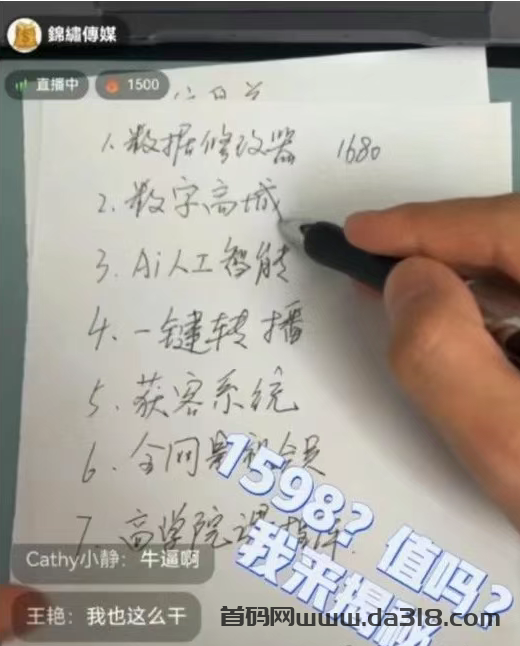 錦繡傳媒
直播中
1500
1.数据修改器 1680
2.数字商城
3.Ai人工智能
4.一键转播
5.获客系统
6.全网影视会员
7.商学院课
1598?值吗?
我来揭秘
Cathy小静：牛逼啊
王艳：我也这么干
首码网www.da318.com